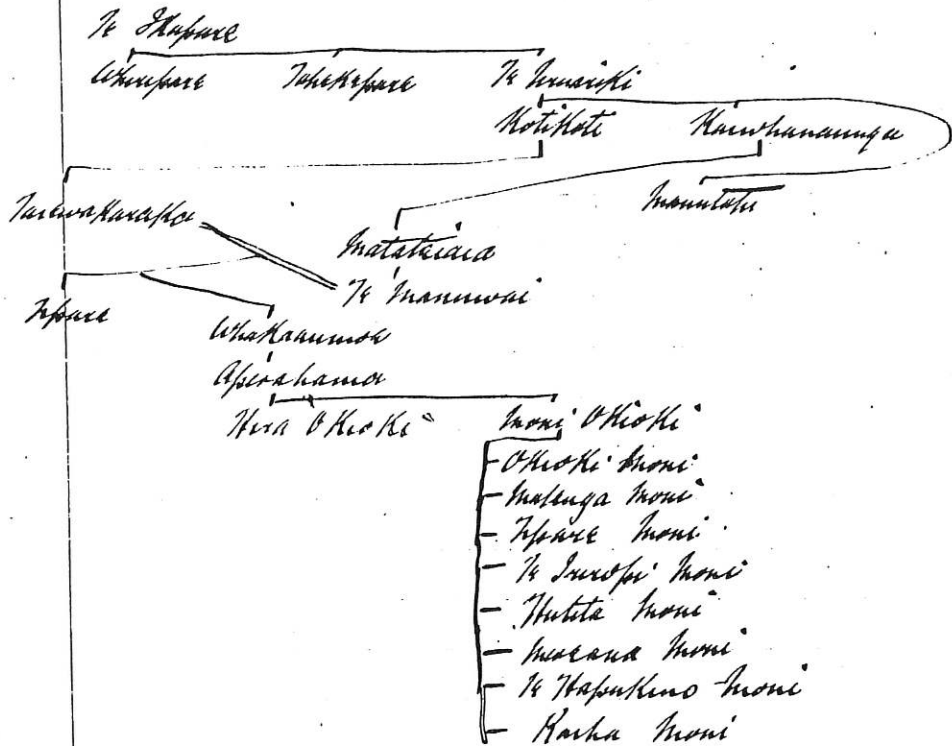 Te Ikapare
Whiripare Tahekepare Te Iruariki
KotiKoti Kaiwhanaunga
Manutapu
TarewaKaraka
Matataiaia
Te Manuwai
Tipare
WhaKaaumoe
Aperahama
Hira OKioKi Moni OKioKi
OKioKi Moni
Matenga Moni
Tipare Moni
Te Iwiropi Moni
Hutita Moni
Mereana Moni
Te HapuKino Moni
Karha Moni